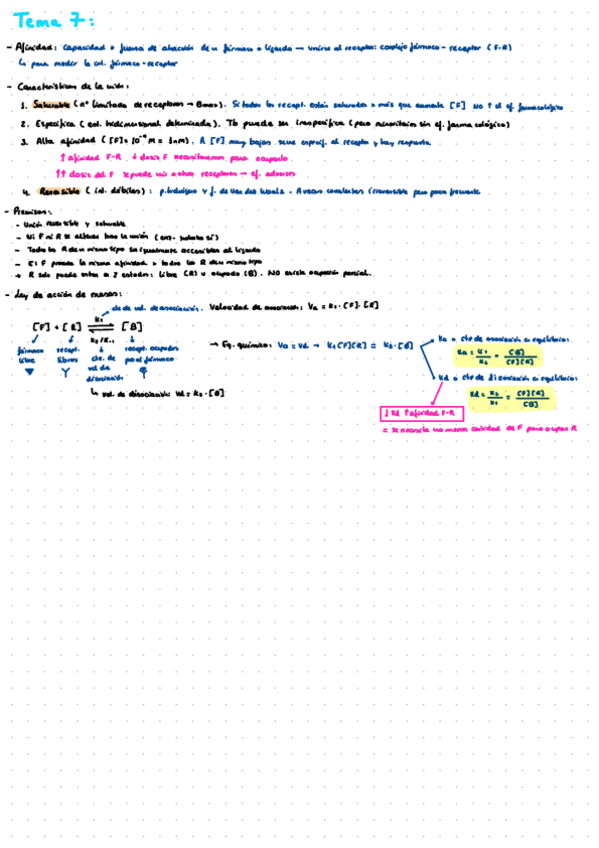 Tema 7:
- Afinidad: Capacidad o fuerza de atracción de un fármaco o ligando → unirse al receptor: complejo fármaco - receptor (F-R)
↳ para medir la int. fármaco-receptor
- Características de la unión:
1. Saturable (nº limitado de receptores → Bmax). Si todos los recept. están saturados x más que aumente [F] NO ↑ el ef. farmacológico
2. Específica (est. tridimensional determinada). Tb puede ser inespecífica (pero minoritarios sin ef. farmacológico)
3. Alta afinidad ([F] = 10⁻⁹ M = 1nM). A [F] muy bajas se une específ. al receptor y hay respuesta.
↑ afinidad F-R ↓ dosis F necesitaremos para ocuparlo
↑↑ dosis del F se puede unir a otros receptores → ef. adversos
4. Reversible (int. débiles): p. hidrógeno y f. de Van der Waals. A veces covalentes irreversible pero poco frecuente
- Premisas:
- Unión reversible y saturable
- Ni F ni R se alteran tras la unión
- Todos los R de un mismo tipo son igualmente accesibles al ligando
- El F presenta la misma afinidad x todos los R de un mismo tipo
→ R solo puede estar en 2 estados: libre (R) u ocupado (B). NO existe ocupación parcial.
- Ley de acción de masas:
cte de vel. de asociación. Velocidad de asociación: Va = K₁·[F]·[R]
K₁
[F] + [R] ⇌ [B]
K₂/K₋₁
fármaco libre
recept. libres
cte. de vel de disociación
recept. ocupados por el fármaco
↳ vel. de disociación: Vd = K₂·[B]
→ Eq. químico: Va = Vd → K₁[F][R] = K₂·[B]
Ka = cte de asociación en equilibrio:
Ka = K₁/K₂ = [B]/[F][R]
Kd = cte de disociación en equilibrio:
Kd = K₂/K₁ = [F][R]/[B]
↓ Kd ↑ afinidad F-R
= se necesita una menor cantidad de F para ocupar R